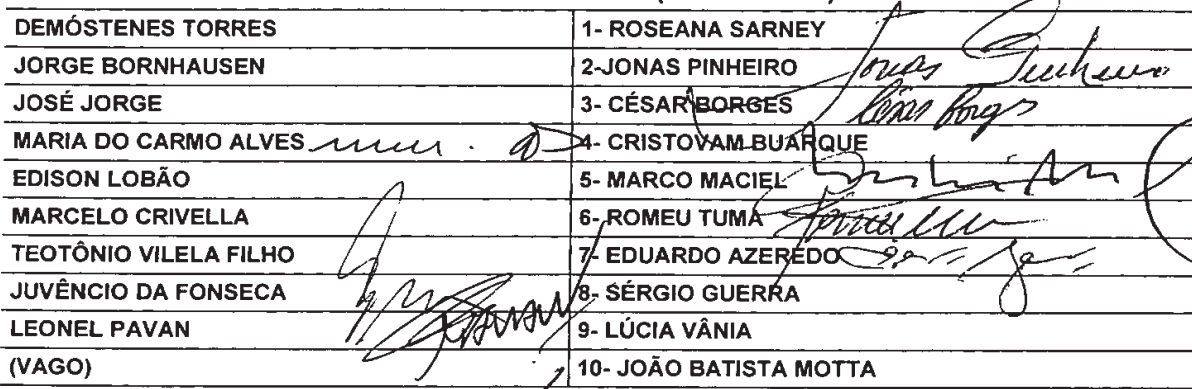 DEMÓSTENES TORRES 1- ROSEANA SARNEY
JORGE BORNHAUSEN 2-JONAS PINHEIRO Jonas Pinheiro
JOSÉ JORGE 3- CÉSAR BORGES César Borges
MARIA DO CARMO ALVES 4- CRISTOVAM BUARQUE
EDISON LOBÃO 5- MARCO MACIEL
MARCELO CRIVELLA 6- ROMEU TUMA
TEOTÔNIO VILELA FILHO 7- EDUARDO AZEREDO
JUVÊNCIO DA FONSECA 8- SÉRGIO GUERRA
LEONEL PAVAN 9- LÚCIA VÂNIA
(VAGO) 10- JOÃO BATISTA MOTTA